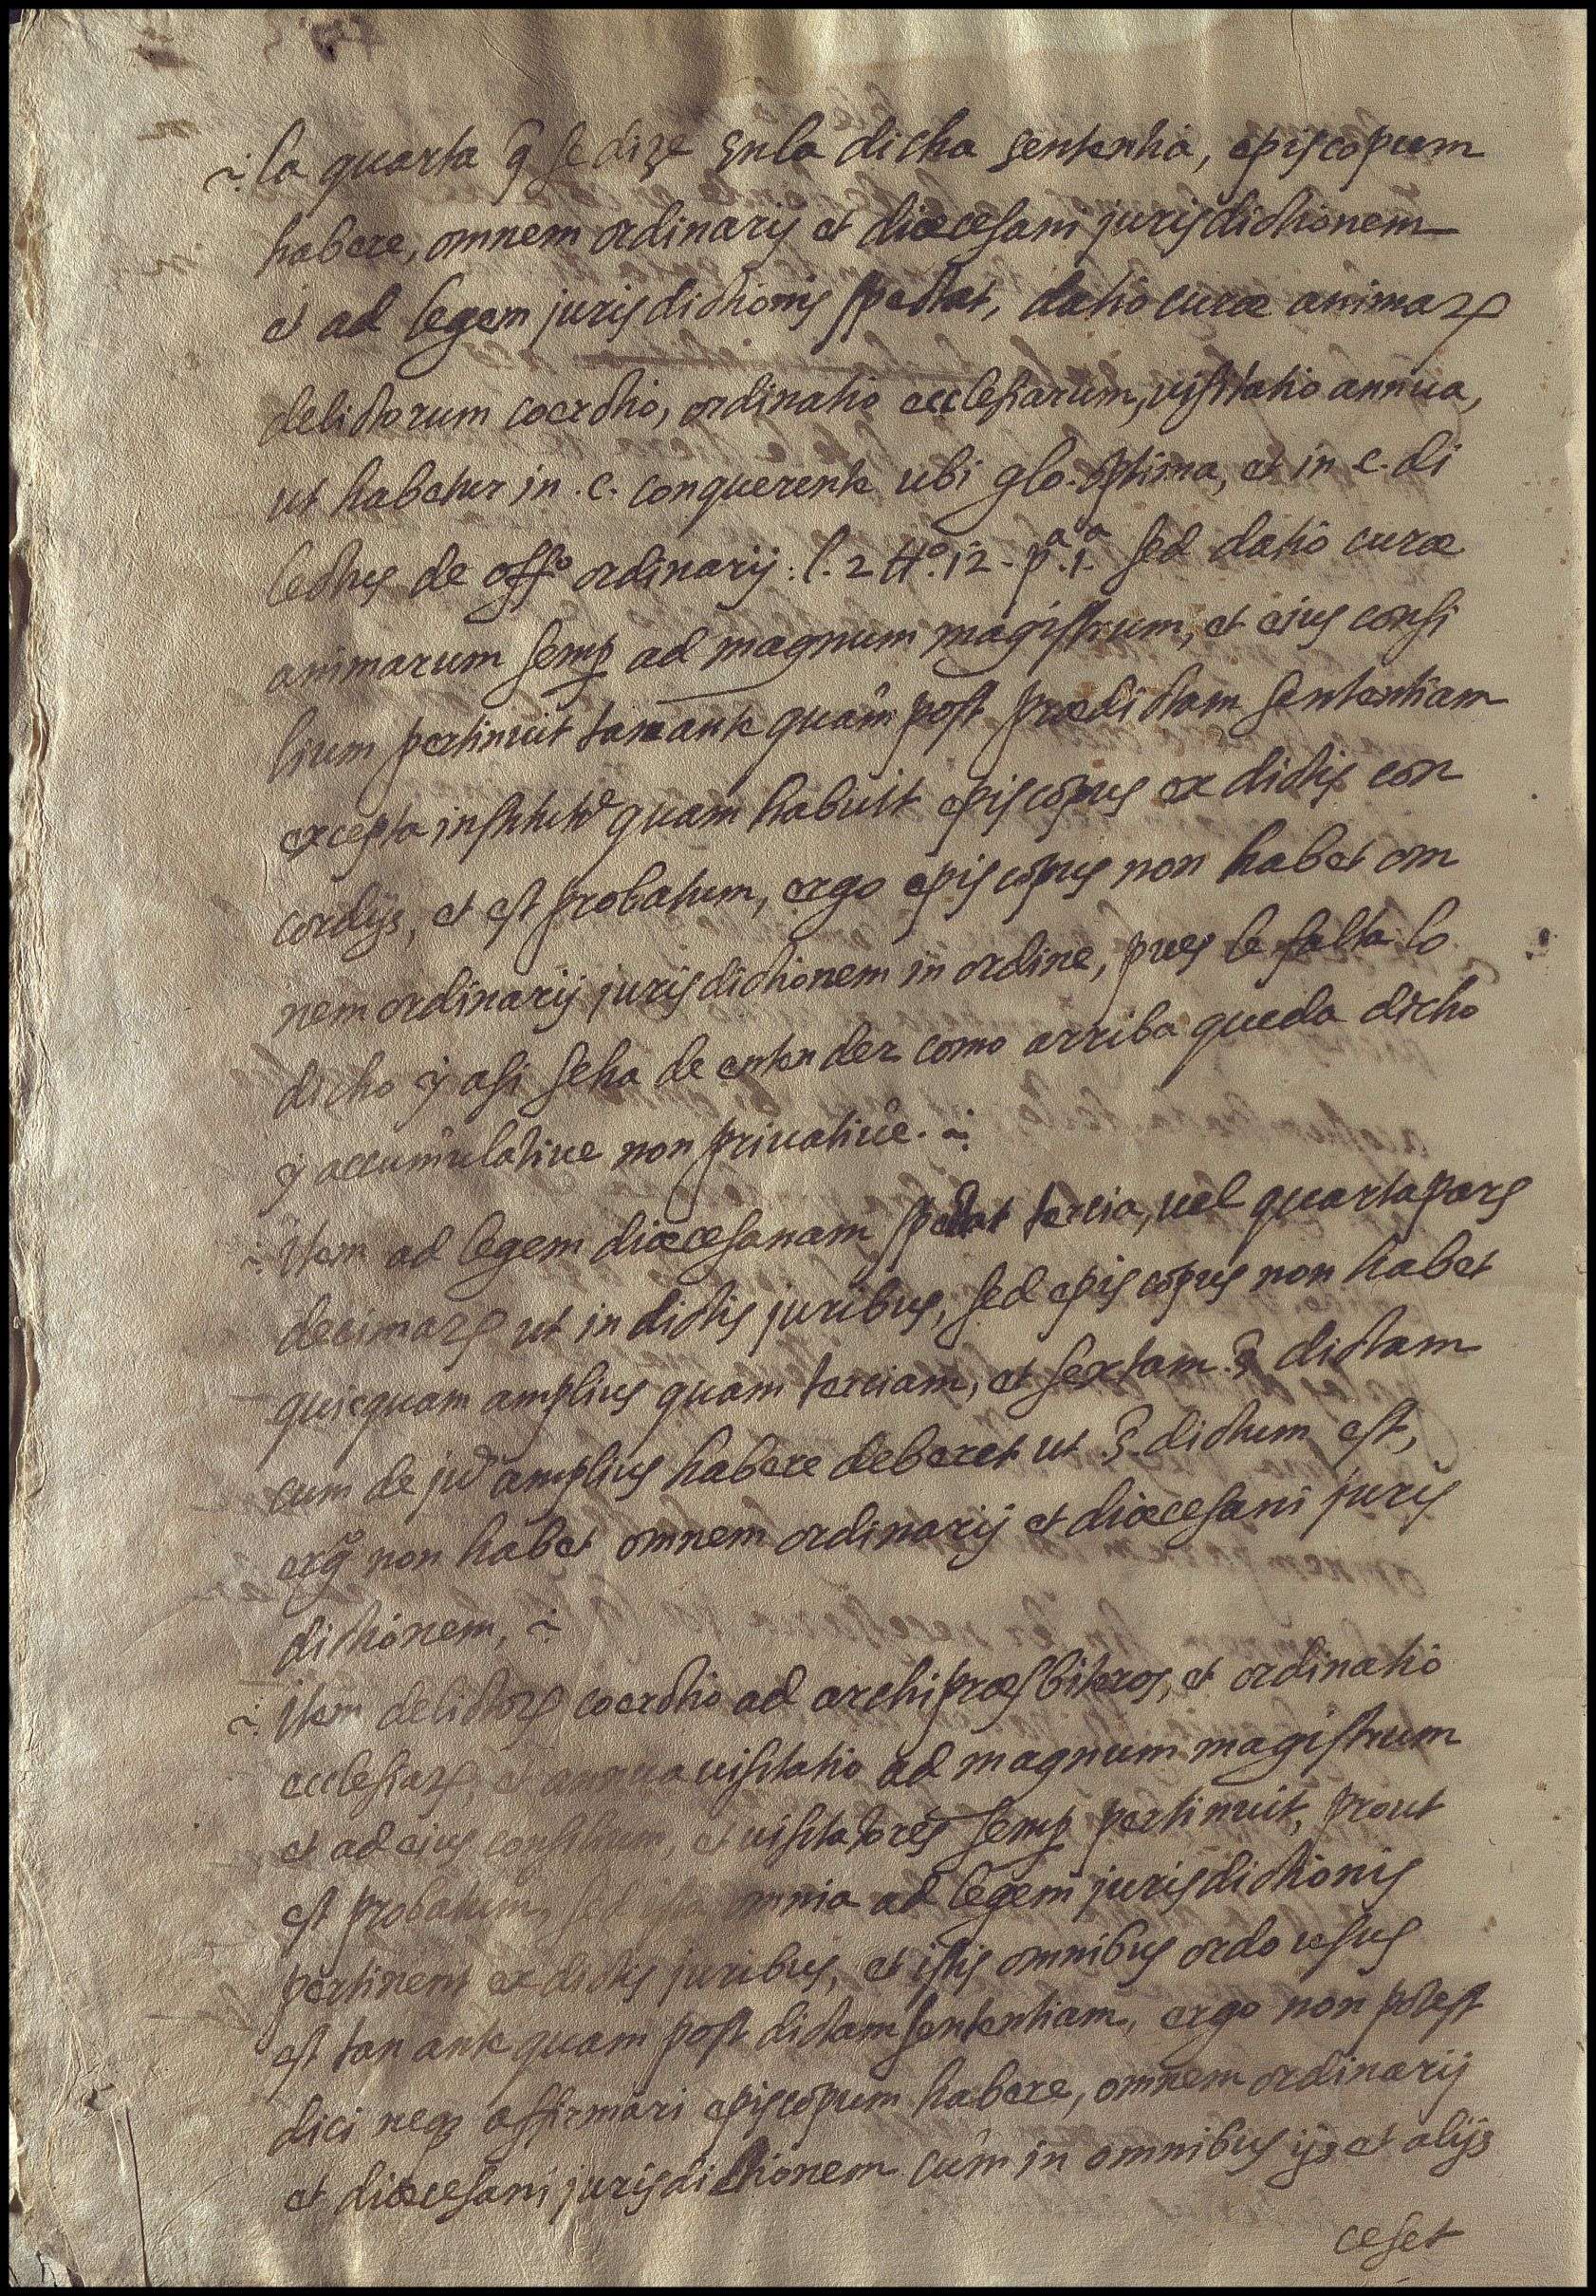 la quarta q̃ se dize en la dicha sententia, episcopum
habere, omnem ordinarij et diœcesani jurisdictionem
et ad legem jurisdictionis spectat, datio curæ animaꝝ
delictorum coerctio, ordinatio ecclesiarum, visitatio annua,
ut habetur in .c. conquerente ubi glo. optima, et in c. di
lectus de offº ordinarij : l. 2 ttº. 12 - pª. 1ª sed datio curæ
animarum semꝑ ad magnum magistrum, et eius consi
lium pertinuit tam ante quam post prædictam sententiam
excepta institutᵉ quam habuit episcopus ex dictis con
cordijs, et est probatum, ergo episcopus non habet om
nem ordinarij jurisdictionem in ordine, pues le falta lo
dicho y asi se ha de entender como arriba queda dicho
y accumulative non privative.
Item ad legem diœcesanam spectat tercia, vel quarta pars
decimaꝝ ut in dictis juribus, sed episcopus non habet
quicquam amplius quam terciam, et sextam dictam
cum de juᵉ amplius habere deberet ut dictum est,
ergº non habet omnem ordinarij et diœcesani juris
dictionem,
Item delictoꝝ coerctio ad archipræsbiteros, et ordinatio
ecclesiaꝝ, et annua visitatio ad magnum magistrum
et ad eius consilium, et visitatores semꝑ pertinuit, prout
est probatum, sed ista omnia ad legem jurisdictionis
pertinent ex dictis juribus, et istis omnibus ordo usus
est tan ante quam post dictam sententiam, ergo non potest
dici neqꝫ affirmari episcopum habere, omnem ordinarij
et diœcesani jurisdictionem cum in omnibus ijs et alijs
ceset